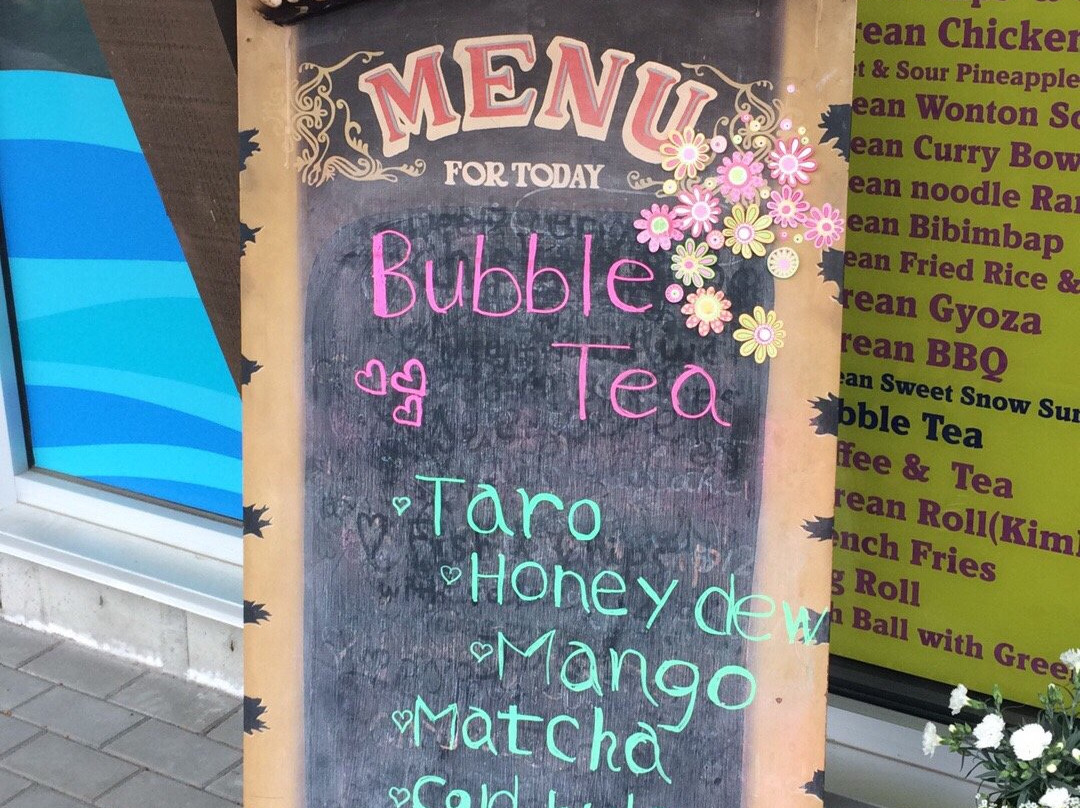 MENU
FOR TODAY
Bubble
Tea
Taro
Honey dew
Mango
Matcha
rean Chicken
et & Sour Pineapple
ean Wonton So
ean Curry Bow
ean noodle Ra
ean Bibimbap
ean Fried Rice &
rean Gyoza
rean BBQ
ean Sweet Snow Sun
bble Tea
ffee & Tea
rean Roll(Kim
ench Fries
g Roll
n Ball with Green